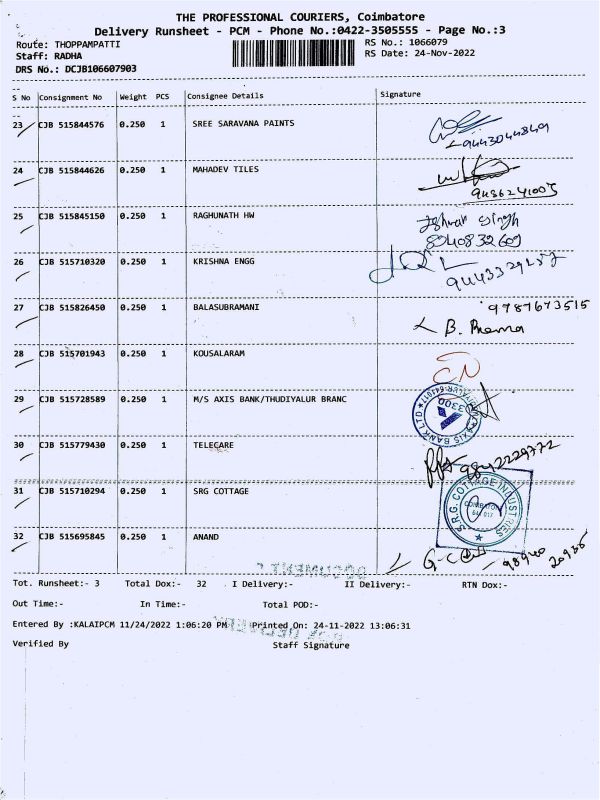 THE PROFESSIONAL COURIERS, Coimbatore
Delivery Runsheet - PCM - Phone No.:0422-3505555 - Page No.:3
Route: THOPPAMPATTI RS No.: 1066079
Staff: RADHA RS Date: 24-Nov-2022
DRS No.: DCJB106607903
S No Consignment No Weight PCS Consignee Details Signature
23 CJB 515844576 0.250 1 SREE SARAVANA PAINTS
9443044849
24 CJB 515844626 0.250 1 MAHADEV TILES
9486241005
25 CJB 515845150 0.250 1 RAGHUNATH HW
Singh
8940832609
26 CJB 515710320 0.250 1 KRISHNA ENGG
27 CJB 515826450 0.250 1 BALASUBRAMANI 9787673515
B. Prema
28 CJB 515701943 0.250 1 KOUSALARAM
EN
29 CJB 515728589 0.250 1 M/S AXIS BANK/THUDIYALUR BRANC
AXIS BANK LTD
30 CJB 515779430 0.250 1 TELECARE
9842229772
31 CJB 515710294 0.250 1 SRG COTTAGE
S.R.G. COTTAGE INDUSTRIES
COIMBATORE
641 017
32 CJB 515695845 0.250 1 ANAND
98940 20935
Tot. Runsheet:- 3 Total Dox:- 32 I Delivery:- II Delivery:- RTN Dox:-
Out Time:- In Time:- Total POD:-
Entered By :KALAIPCM 11/24/2022 1:06:20 PM Printed On: 24-11-2022 13:06:31
Verified By Staff Signature